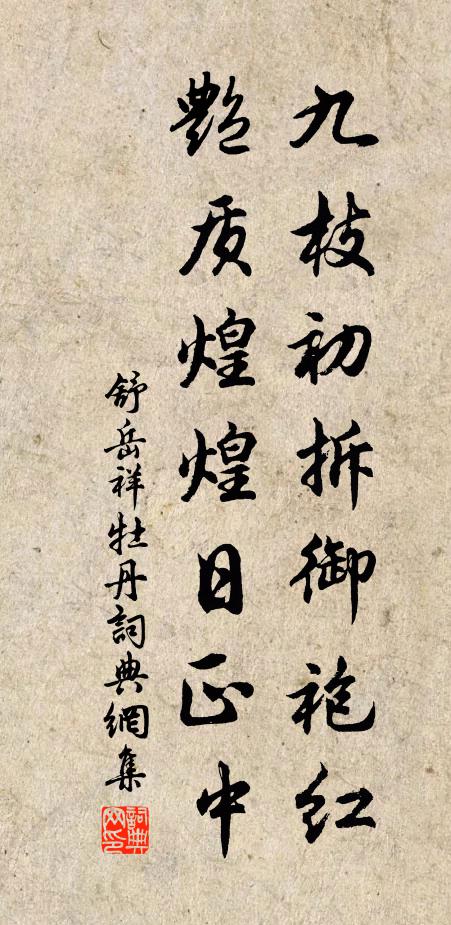 九枝初拆御袍红
艳质煌煌日正中
舒岳祥牡丹詞典網集
詞典网印